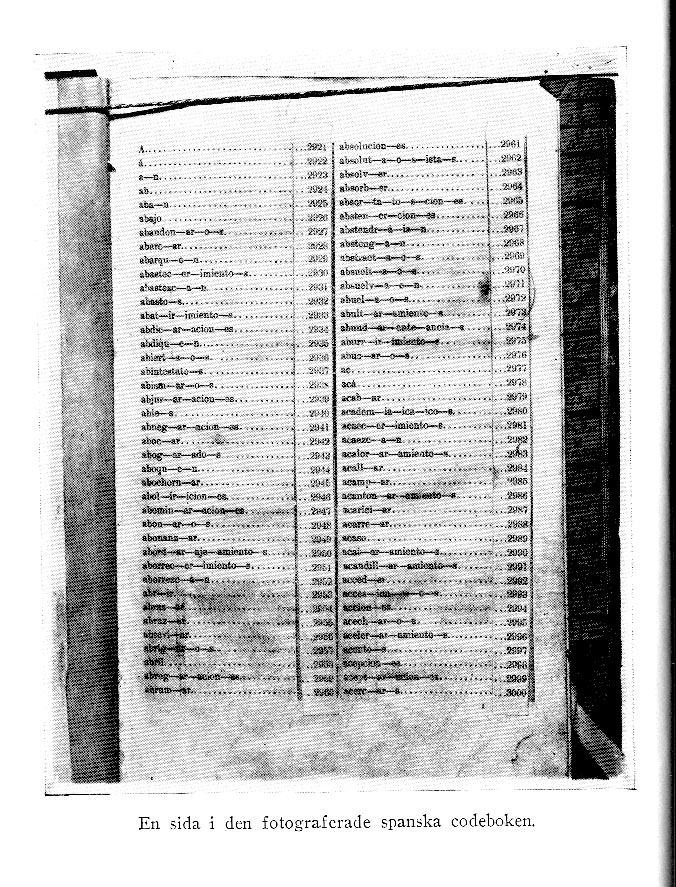 A 2921
á 2922
a—n 2923
ab 2924
aba—n 2925
abajo 2926
abandon—ar—o—s 2927
abarc—ar 2928
abarqu—e—n 2929
abastec—er—imiento—s 2930
abastezc—a—n 2931
abasto—s 2932
abat—ir—imiento—s 2933
abdic—ar—acion—es 2934
abdiqu—e—n 2935
abiert—a—o—s 2936
abintestato—s 2937
abism—ar—o—s 2938
abjur—ar—acion—es 2939
2940
abneg—ar—acion—es 2941
aboc—ar 2942
abog—ar—ado—s 2943
aboqu—e—n 2944
abochorn—ar 2945
abol—ir—icion—es 2946
abomin—ar—acion—es 2947
abon—ar—o—s 2948
abonanz—ar 2949
abord—ar—aje—amiento—s 2950
aborrec—er—imiento—s 2951
aborrezc—a—n 2952
abr—ir 2953
2954
abraz—ar 2955
2956
abrig—ar—o—s 2957
abril 2958
abrog—ar—acion—es 2959
abrum—ar 2960
absolucion—es 2961
absolut—a—o—s—ista—s 2962
absolv—er 2963
absorb—er 2964
absor—ta—to—s—cion—es 2965
absten—er—cion—es 2966
abstendr—á—ia—n 2967
absteng—a—n 2968
abstract—a—o—s 2969
absuelt—a—o—s 2970
absuelv—a—e—n 2971
abuel—a—o—s 2972
abult—ar—amiento—s 2973
abund—ar—ante—ancia—s 2974
aburr—ir—imiento—s 2975
abus—ar—o—s 2976
ac 2977
acá 2978
acab—ar 2979
academ—ia—ica—ico—s 2980
acaec—er—imiento—s 2981
acaezc—a—n 2982
acalor—ar—amiento—s 2983
acall—ar 2984
acamp—ar 2985
acanton—ar—amiento—s 2986
acarici—ar 2987
acarre—ar 2988
acaso 2989
acat—ar—amiento—s 2990
acaudill—ar—amiento—s 2991
acced—er 2992
2993
accion—es 2994
acech—ar—o—s 2995
aceler—ar—amiento—s 2996
acento—s 2997
acepcion—es 2998
acept—ar—acion—es 2999
acerc—ar—a—s 3000
En sida i den fotograferade spanska codeboken.